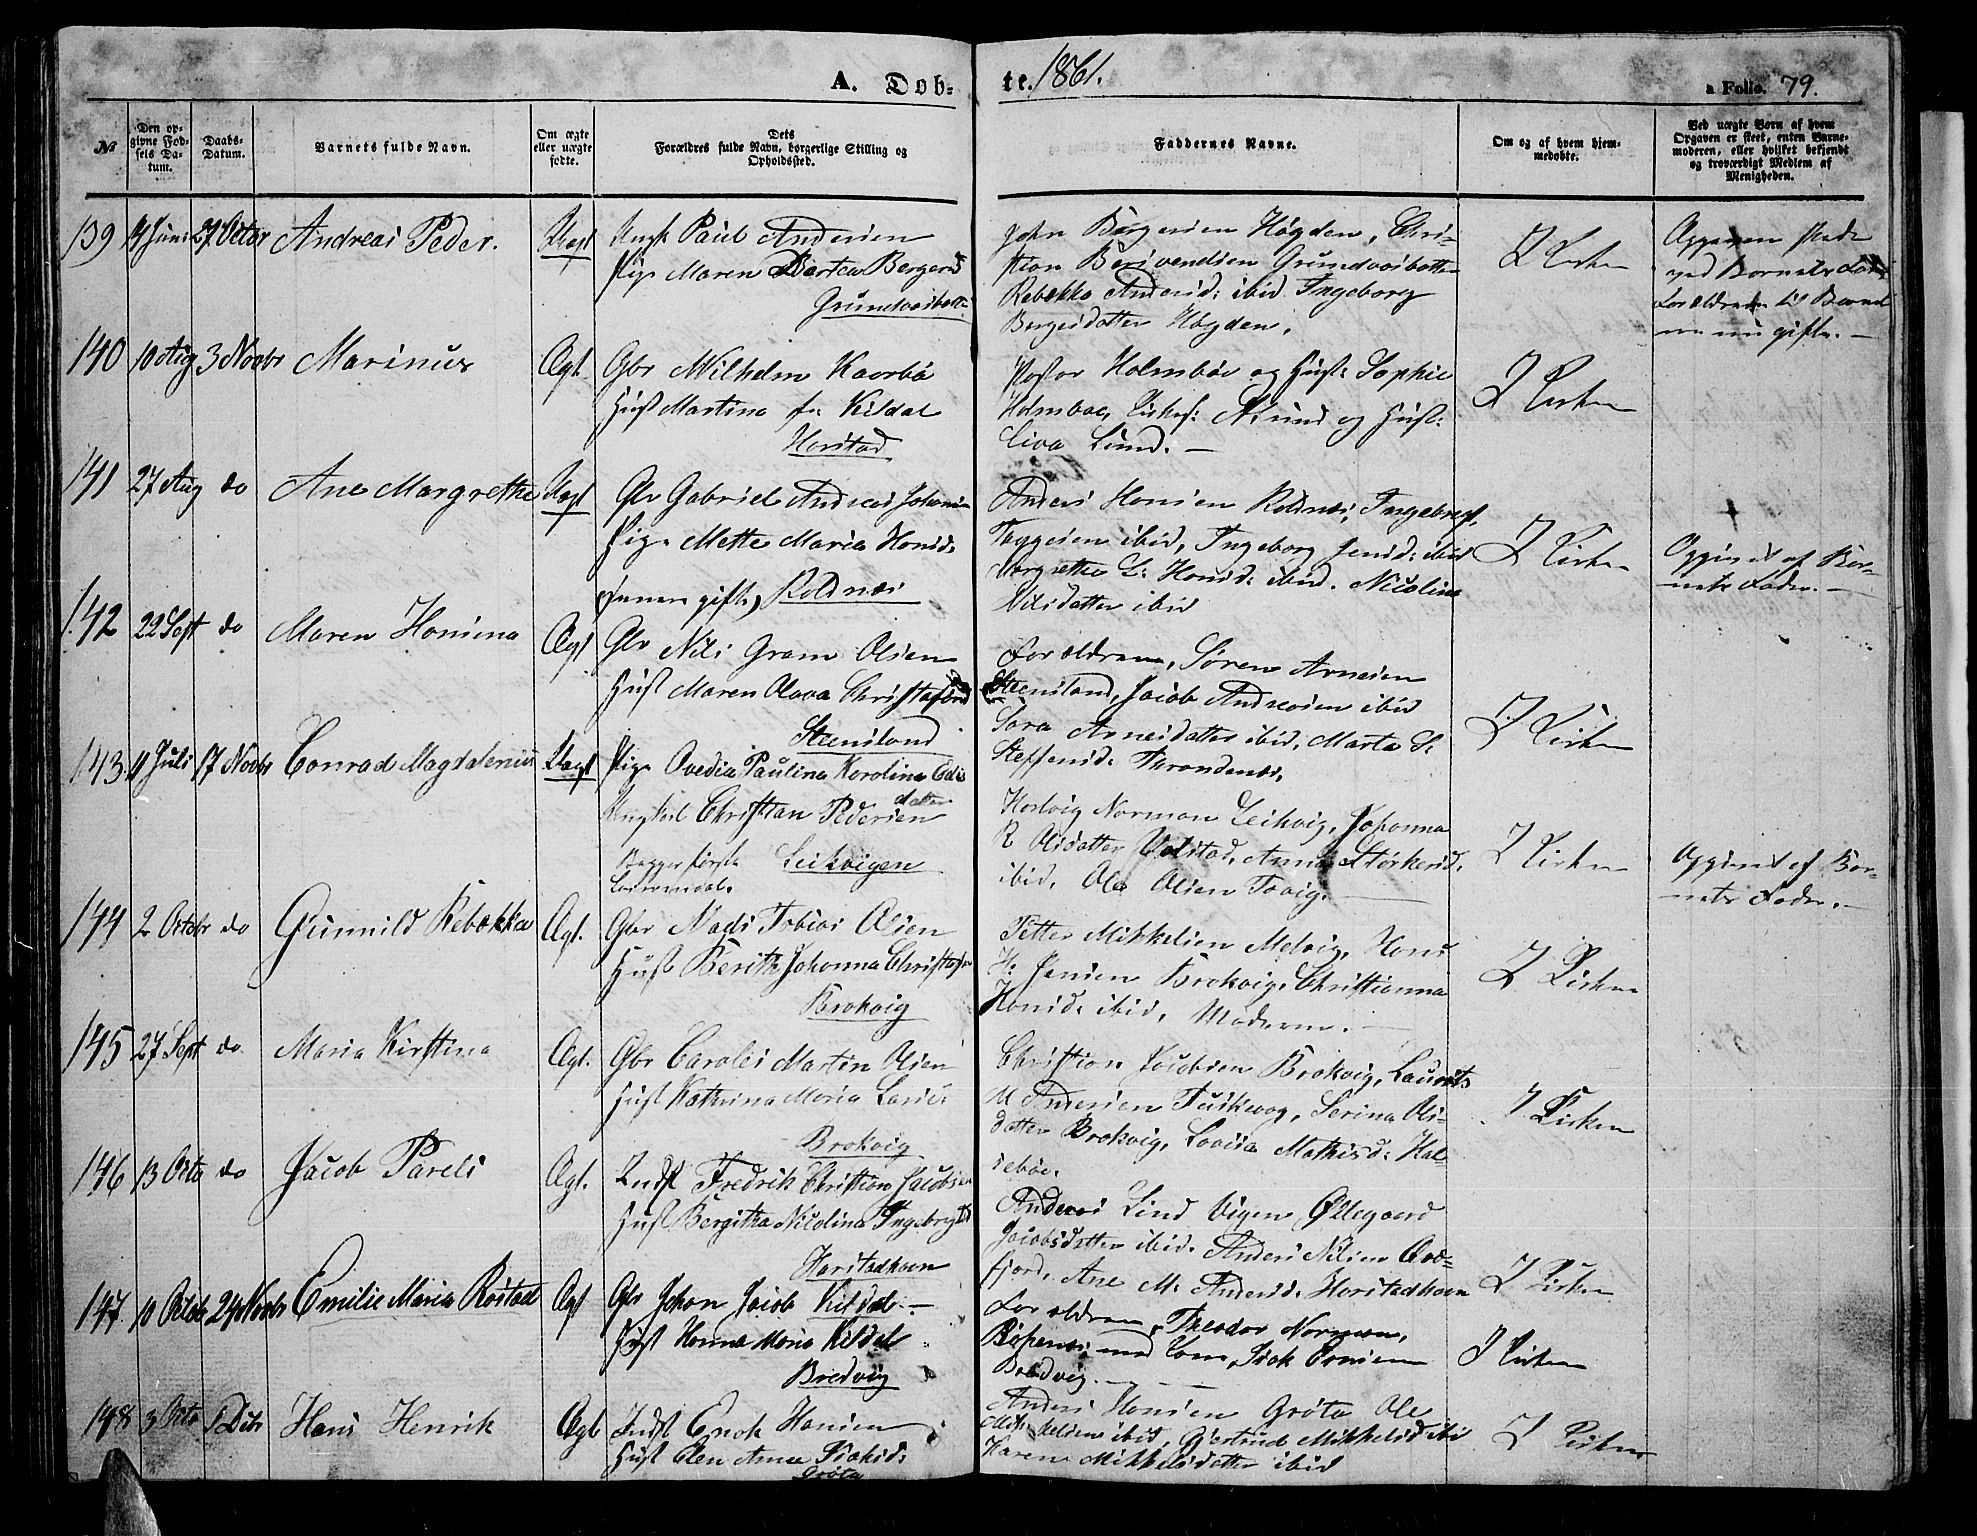 A. Dob- te. 1861. a Folio. 79.
№
Den op-
givne Fød-
sels Da-
tum.
Daabs-
Datum.
Barnets fulde Navn.
Om ægte
eller uægte
født.
Dets
Forældres fulde Navn, borgerlige Stilling og
Opholdssted.
Faddernes Navne.
Om og af hvem hjem-
medøbt.
Ved uægte Børn af hvem
Opgaven er skeet, enten Barne-
moderen, eller hvilket bekjendt
og troværdigt Medlem af
Menigheden.
139 9 Juni 27 Octbr Andreas Peder. Uægt
Ungk Paul Andersen
Pige Maren Bertea Bergersd
Grundvasbotn
John Bergersen Høgden, Chri-
stian Bersvendsen Grundvasbotten
Rebekka Andersd: ibid Ingeborg
Bergesdatter Høgden.
I Kirken
Opgaven skede
ved Barnets Fader
Forældrene til Barnet
ere nu gifte. —
140 10 Aug 3 Novbr Marinus Ægt.
Gbr Wilhelm Kaarbø
Hust Martina f. Kildal
Harstad
Pastor Holmboe og Hust: Sophie
Holmboe, Kirkes: Lund og Hust:
Lund. —
I Kirken
141 27 Aug do Ane Margrethe Uægt
Glv Gabriel Andreas Johans
Pige Mette Maria Hansd.
(senere gifte) Roldnæs
Anders Hansen Roldnæs, Ingebregt
Taggesen ibid, Ingeborg Jensd: ibid
Margrethe E: Hansd: ibid. Nicolina
Nilsdatter ibid
I Kirken
+
Opgivet af Bar-
nets Fader. —
142 22 Sept do Maren Hansina Ægt
Glv Nils Gram Olsen
Hust Maren Olava Christofersd
Steensland
Forældrene, Søren Arnesen
Steensland, Jacob Andreasen ibid
Sara Arnesdatter ibid, Marta S:
Steffensd: Throndenæs.
I Kirken
143 11 Juli 17 Novbr Conrad Magdalenius Uægt
Pige Ovedia Paulina Karolina Edis
datter
Ungkarl Christian Pedersen
Begges første
Leiermaal. Leikvigen
Hartvig Norman Leikvig, Johanna
R Olsdatter Volstad, Anna Størkersd.
ibid, Ole Olsen Tovig. —
I Kirken
Opgivet af Bar-
nets Fader. —
144 2 Octobr do Gunnild Rebekka Ægt.
Gbr Mads Tobias Olsen
Hust Berith Johanna Christofersd
Brokvig
Petter Mikkelsen Melvig, Hans
H: Jensen Brokvig, Christianna
Hansd: ibid, Moderen. —
I Kirken
145 27 Sept do. Maria Kirstina Ægt.
Gbr Carolus Martin Olsen
Hust Kathrina Maria Larsd:
Brokvig
Christian Jacobsen Brokvig, Laurits
M Andersen Fuskevog, Serina Ols-
datter Brokvig, Lovisa Mathisd: Hal-
sebøe.
I Kirken
146 13 Octo do Jacob Pareli Ægt.
Indst Fredrik Christian Jacobsen
Hust Bergitha Nicolina Ingebrigtsd
Harstadhavn
Anders Lind Vigen Øllegaard
Jacobsdatter ibid. Anders Nilsen God-
fjord, Ane M: Andersd: Harstadhavn
I Kirken
147. 10 Octob 24 Novbr Emilie Maria Røstad Ægt
Gbr Johan Jacob Kildal —
Hust Hanna Maria Kildal
Bredvig
Forældrene, Theodor Normann,
med Kone, Isak Ernsen
Bredvig. —
I Kirken
148 3 Octo 1 Decbr Hans Henrik Ægt
Indst Enok Hansen
Hust Elen Anna Isaksd:
Grøta
Anders Hansen Grøta Ole
Mikkelsen ibid, Gjertrud Mikkelsd ibi
Karen Mikkelsdatter ibid
I Kirken